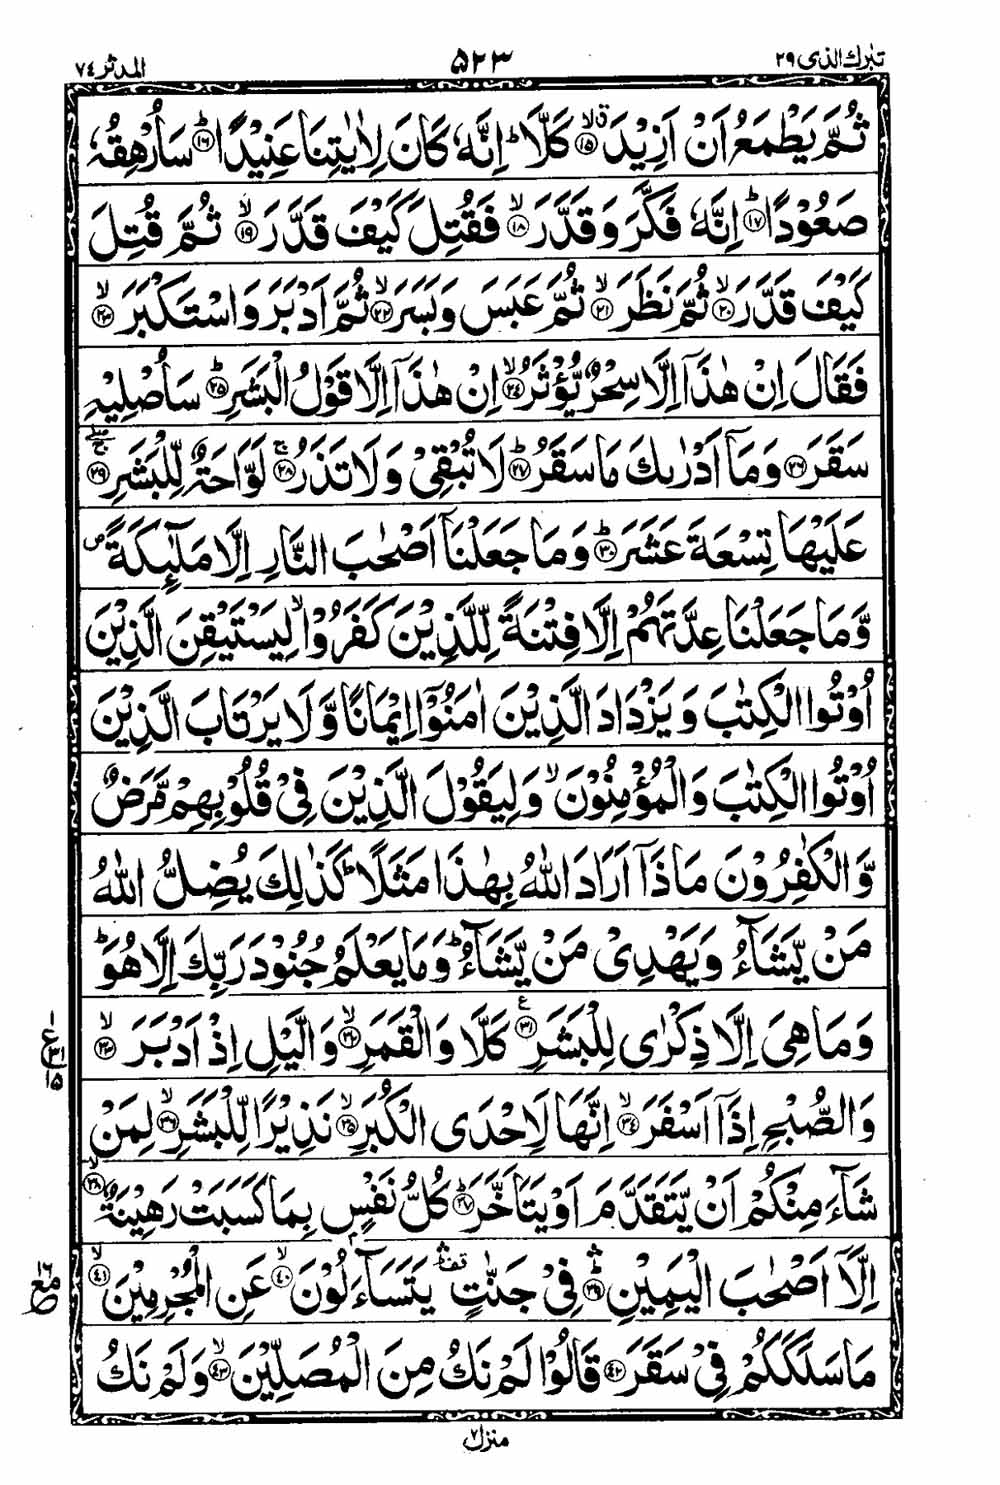 تبٰرك الذى ٢٩
٥٢٣
المدثر ٧٤
ثُمَّ يَطْمَعُ اَنْ اَزِيْدَ ۙق ﴿١٥﴾ كَلَّا ؕ اِنَّهٗ كَانَ لِاٰيٰتِنَا عَنِيْدًا ؕ ﴿١٦﴾ سَاُرْهِقُهٗ
صَعُوْدًا ؕ ﴿١٧﴾ اِنَّهٗ فَكَّرَ وَ قَدَّرَ ۙ ﴿١٨﴾ فَقُتِلَ كَيْفَ قَدَّرَ ۙ ﴿١٩﴾ ثُمَّ قُتِلَ
كَيْفَ قَدَّرَ ۙ ﴿٢٠﴾ ثُمَّ نَظَرَ ۙ ﴿٢١﴾ ثُمَّ عَبَسَ وَ بَسَرَ ۙ ﴿٢٢﴾ ثُمَّ اَدْبَرَ وَ اسْتَكْبَرَ ۙ ﴿٢٣﴾
فَقَالَ اِنْ هٰذَاۤ اِلَّا سِحْرٌ يُّؤْثَرُ ۙ ﴿٢٤﴾ اِنْ هٰذَاۤ اِلَّا قَوْلُ الْبَشَرِ ؕ ﴿٢٥﴾ سَاُصْلِيْهِ
سَقَرَ ﴿٢٦﴾ وَ مَاۤ اَدْرٰىكَ مَا سَقَرُ ؕ ﴿٢٧﴾ لَا تُبْقِيْ وَ لَا تَذَرُ ۚ ﴿٢٨﴾ لَوَّاحَةٌ لِّلْبَشَرِ ۚۖ ﴿٢٩﴾
عَلَيْهَا تِسْعَةَ عَشَرَ ؕ ﴿٣٠﴾ وَ مَا جَعَلْنَاۤ اَصْحٰبَ النَّارِ اِلَّا مَلٰٓئِكَةً ۪
وَّ مَا جَعَلْنَا عِدَّتَهُمْ اِلَّا فِتْنَةً لِّلَّذِيْنَ كَفَرُوْا ۙ لِيَسْتَيْقِنَ الَّذِيْنَ
اُوْتُوا الْكِتٰبَ وَ يَزْدَادَ الَّذِيْنَ اٰمَنُوْۤا اِيْمَانًا وَّ لَا يَرْتَابَ الَّذِيْنَ
اُوْتُوا الْكِتٰبَ وَ الْمُؤْمِنُوْنَ ۙ وَ لِيَقُوْلَ الَّذِيْنَ فِيْ قُلُوْبِهِمْ مَّرَضٌ
وَّ الْكٰفِرُوْنَ مَاذَاۤ اَرَادَ اللّٰهُ بِهٰذَا مَثَلًا ؕ كَذٰلِكَ يُضِلُّ اللّٰهُ
مَنْ يَّشَآءُ وَ يَهْدِيْ مَنْ يَّشَآءُ ؕ وَ مَا يَعْلَمُ جُنُوْدَ رَبِّكَ اِلَّا هُوَ ؕ
وَ مَا هِيَ اِلَّا ذِكْرٰى لِلْبَشَرِ ﴿٣١﴾ع كَلَّا وَ الْقَمَرِ ۙ ﴿٣٢﴾ وَ الَّيْلِ اِذْ اَدْبَرَ ۙ ﴿٣٣﴾
١ ع ٣١ ١٥
وَ الصُّبْحِ اِذَاۤ اَسْفَرَ ۙ ﴿٣٤﴾ اِنَّهَا لَاِحْدَى الْكُبَرِ ۙ ﴿٣٥﴾ نَذِيْرًا لِّلْبَشَرِ ۙ ﴿٣٦﴾ لِمَنْ
شَآءَ مِنْكُمْ اَنْ يَّتَقَدَّمَ اَوْ يَتَاَخَّرَ ؕ ﴿٣٧﴾ كُلُّ نَفْسٍۭ بِمَا كَسَبَتْ رَهِيْنَةٌ ۙ ﴿٣٨﴾
اِلَّاۤ اَصْحٰبَ الْيَمِيْنِ ؕۛ ﴿٣٩﴾ فِيْ جَنّٰتٍ ۛ قف يَتَسَآءَلُوْنَ ۙ ﴿٤٠﴾ عَنِ الْمُجْرِمِيْنَ ۙ ﴿٤١﴾
١٦ مع
مَا سَلَكَكُمْ فِيْ سَقَرَ ﴿٤٢﴾ قَالُوْا لَمْ نَكُ مِنَ الْمُصَلِّيْنَ ۙ ﴿٤٣﴾ وَ لَمْ نَكُ
منزل ٧